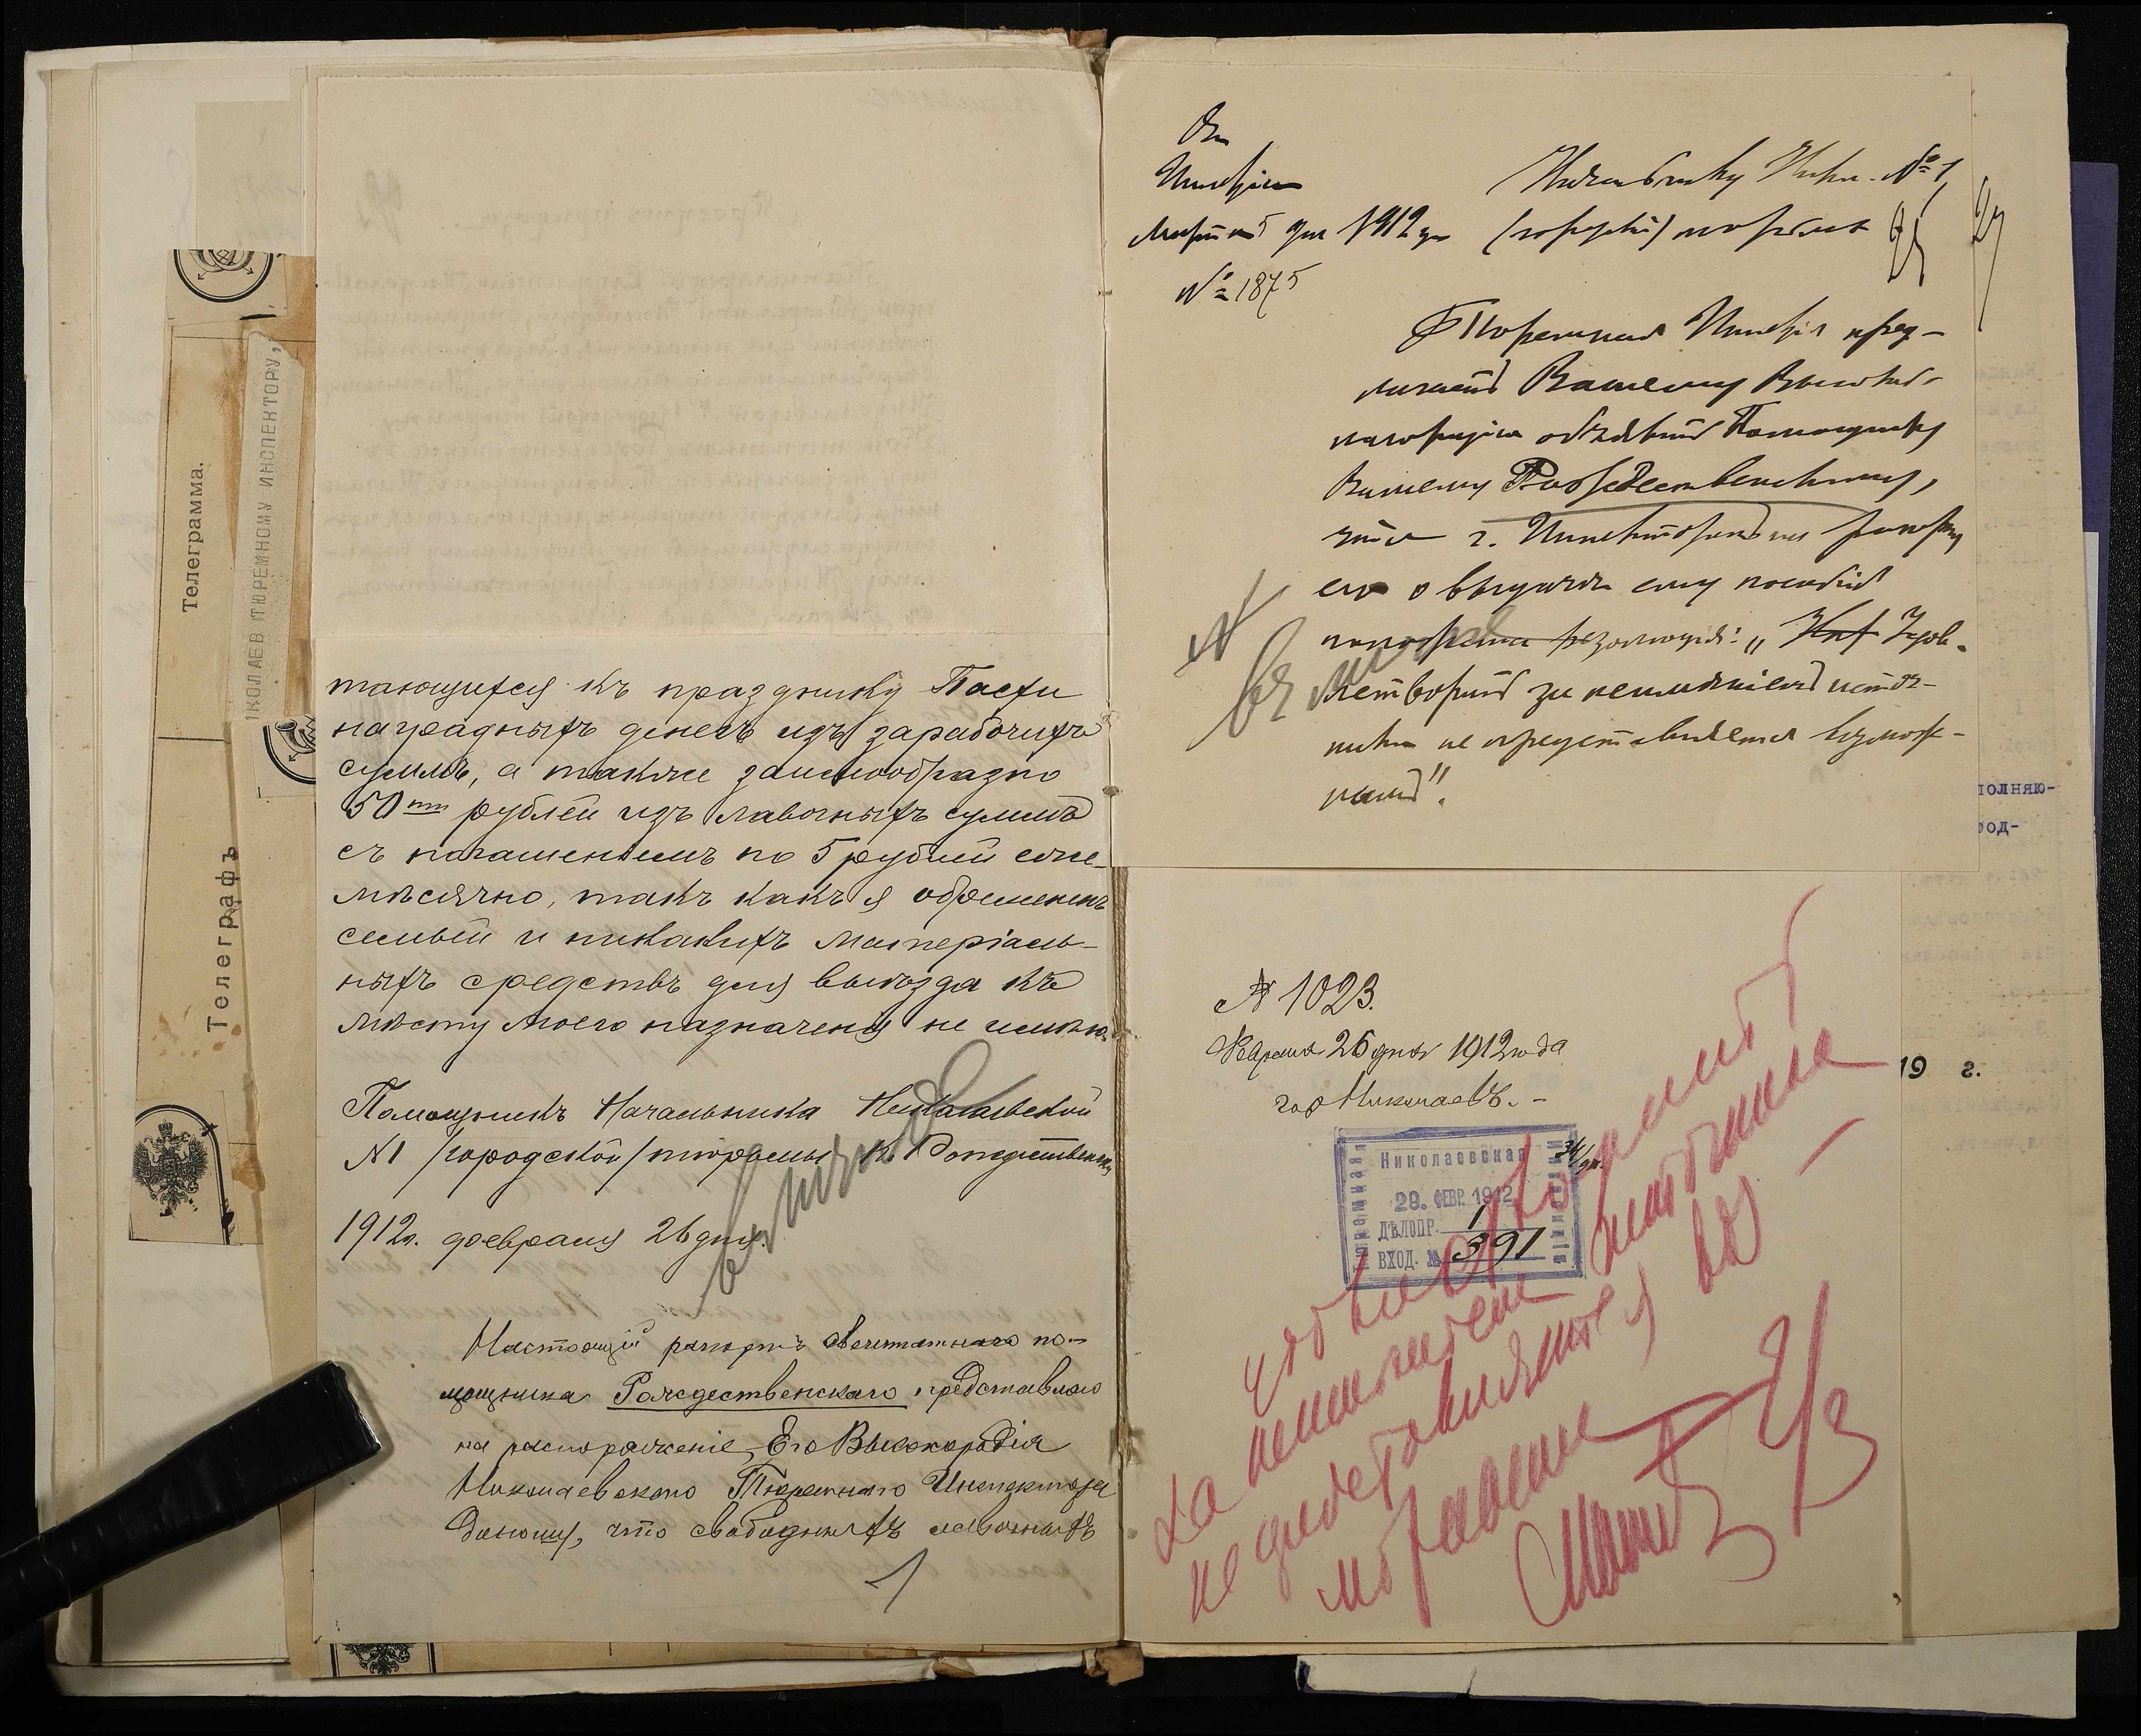 Телеграмма.
НИКОЛАЕВ ТЮРЕМНОМУ ИНСПЕКТОРУ,
Телеграфъ
тающихся къ празднику Пасхи
наградныхъ денегъ изъ заработныхъ
суммъ, а также заимообразно
50ти рублей изъ лавочныхъ суммъ
съ погашеніемъ по 5 рублей еже-
мѣсячно, такъ какъ я обремененъ
семьей и никакихъ матеріаль-
ныхъ средствъ для выѣзда къ
мѣсту моего назначенія не имѣю.
Помощникъ Начальника Николаевской
№1 /городской/ тюрьмы Рождественскій
1912г. февраля 26 дня.
Настоящій рапортъ сверхштатнаго по-
мощника Рождественскаго представляю
на распоряженіе Его Высокородія
Николаевскаго Тюремнаго Инспектора
доношу, что свободныхъ лавочныхъ
От
Инспекціи
Марта 5 дня 1912 года
№ 1875
Начальнику Никол. №1
(городской) тюрьмы
Тюремная Инспекція пред-
лагаетъ Вашему Высокоб-
лагородію объявить Помощнику
Вашему Рождественскому,
что г. Инспекторомъ на рапортѣ
его о выдачѣ ему пособія
положена резолюція: „Удов-
летворить за неимѣніемъ источ-
ника не представляется возмож-
нымъ".
№ 1023.
Февраля 26 дня 1912 года
гор Николаевъ. -
Николаевская
Тюремная
Инспекція
29. ФЕВР. 1912
ДѢЛОПР. 1
ВХОД. № 391
Удовлетворить
за неимѣніемъ источника
не представляется воз-
можнымъ
2/3
полняю-
род-
19 г.